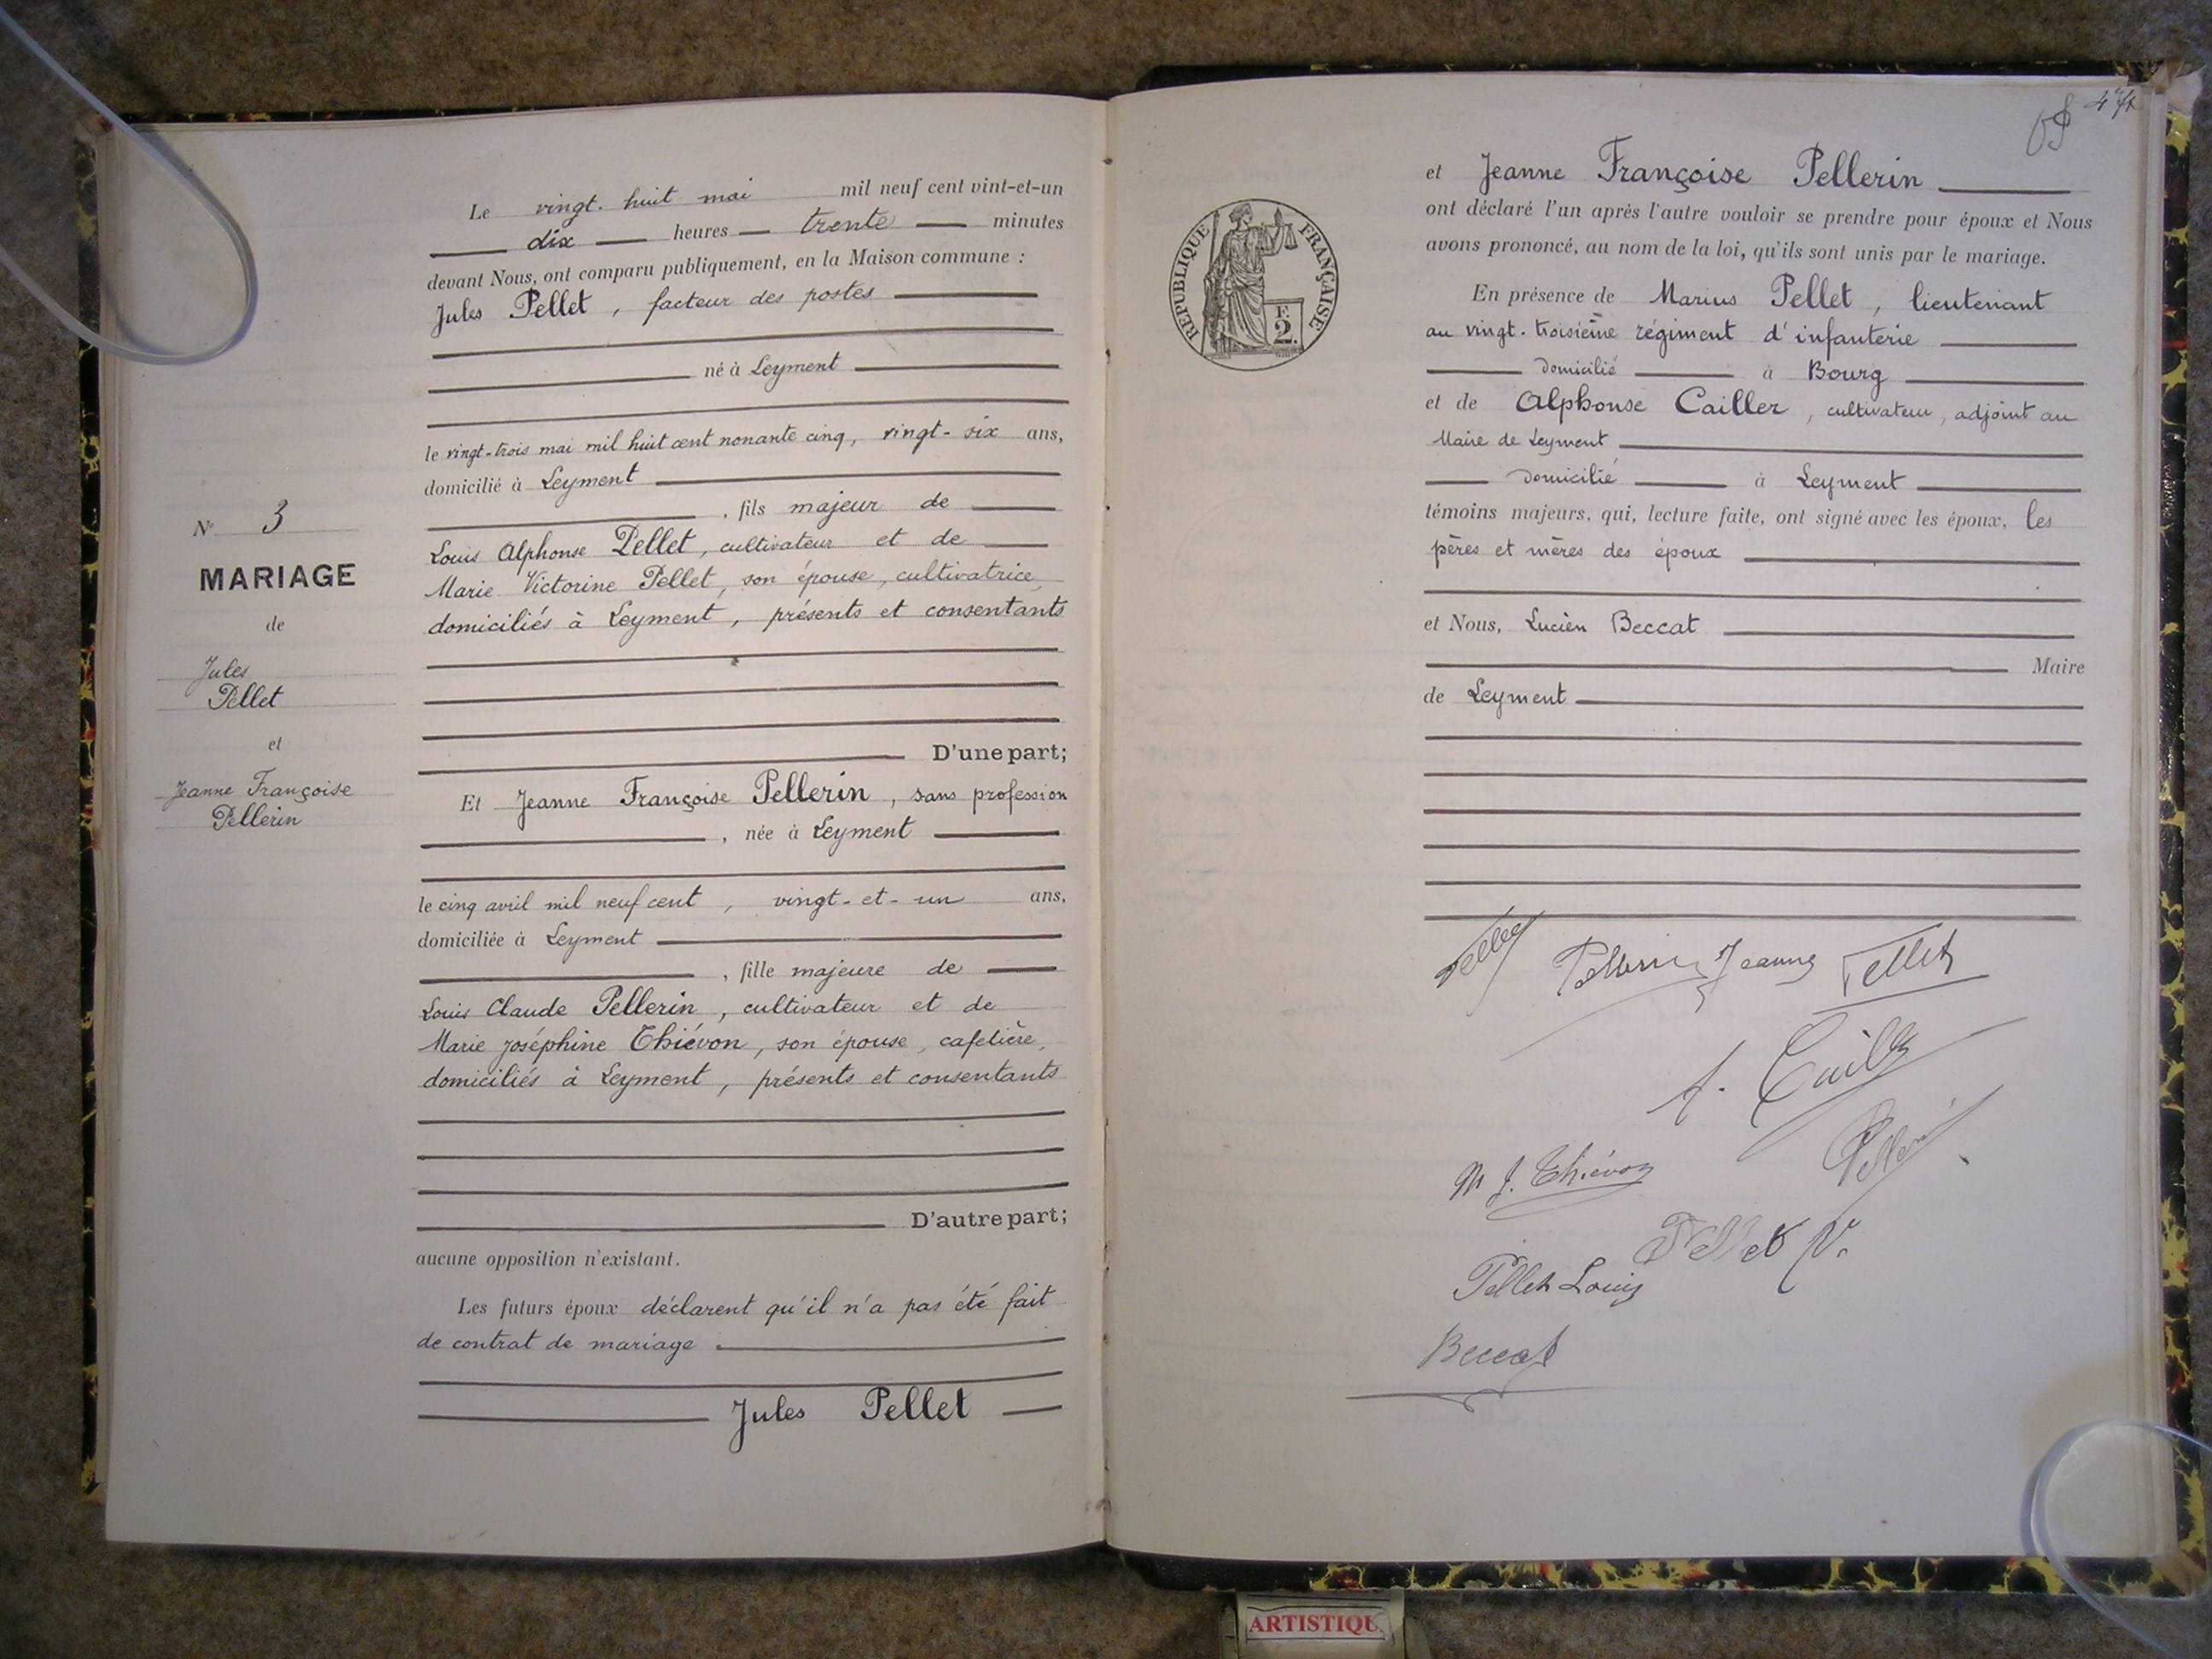 Le vingt-huit mai mil neuf cent vint-et-un
dix heures trente minutes
devant Nous, ont comparu publiquement, en la Maison commune :
Jules Pellet, facteur des postes
né à Leyment
le vingt-trois mai mil huit cent nonante cinq, vingt-six ans,
domicilié à Leyment
, fils majeur de
Louis Alphonse Pellet, cultivateur et de
Marie Victorine Pellet, son épouse, cultivatrice,
domiciliés à Leyment, présents et consentants
D'une part;
Et Jeanne Françoise Pellerin, sans profession
, née à Leyment
le cinq avril mil neuf cent, vingt-et-un ans,
domiciliée à Leyment
, fille majeure de
Louis Claude Pellerin, cultivateur et de
Marie Joséphine Thiévon, son épouse, cafetière,
domiciliés à Leyment, présents et consentants
D'autre part;
aucune opposition n'existant.
Les futurs époux déclarent qu'il n'a pas été fait
de contrat de mariage
Jules Pellet
N° 3
MARIAGE
de
Jules
Pellet
et
Jeanne Françoise
Pellerin
RÉPUBLIQUE FRANÇAISE
F.
2.
et Jeanne Françoise Pellerin
ont déclaré l'un après l'autre vouloir se prendre pour époux et Nous
avons prononcé, au nom de la loi, qu'ils sont unis par le mariage.
En présence de Marius Pellet, lieutenant
au vingt-troisième régiment d'infanterie
domicilié à Bourg
et de Alphonse Cailler, cultivateur, adjoint au
Maire de Leyment
domicilié à Leyment
témoins majeurs, qui, lecture faite, ont signé avec les époux, les
pères et mères des époux
et Nous, Lucien Beccat
Maire
de Leyment
Pellet Pellerin Jeanne Pellet
A. Cailler
M J. Thiévon Pellerin
Pellet V.
Pellet Louis
Beccat
ARTISTIQU